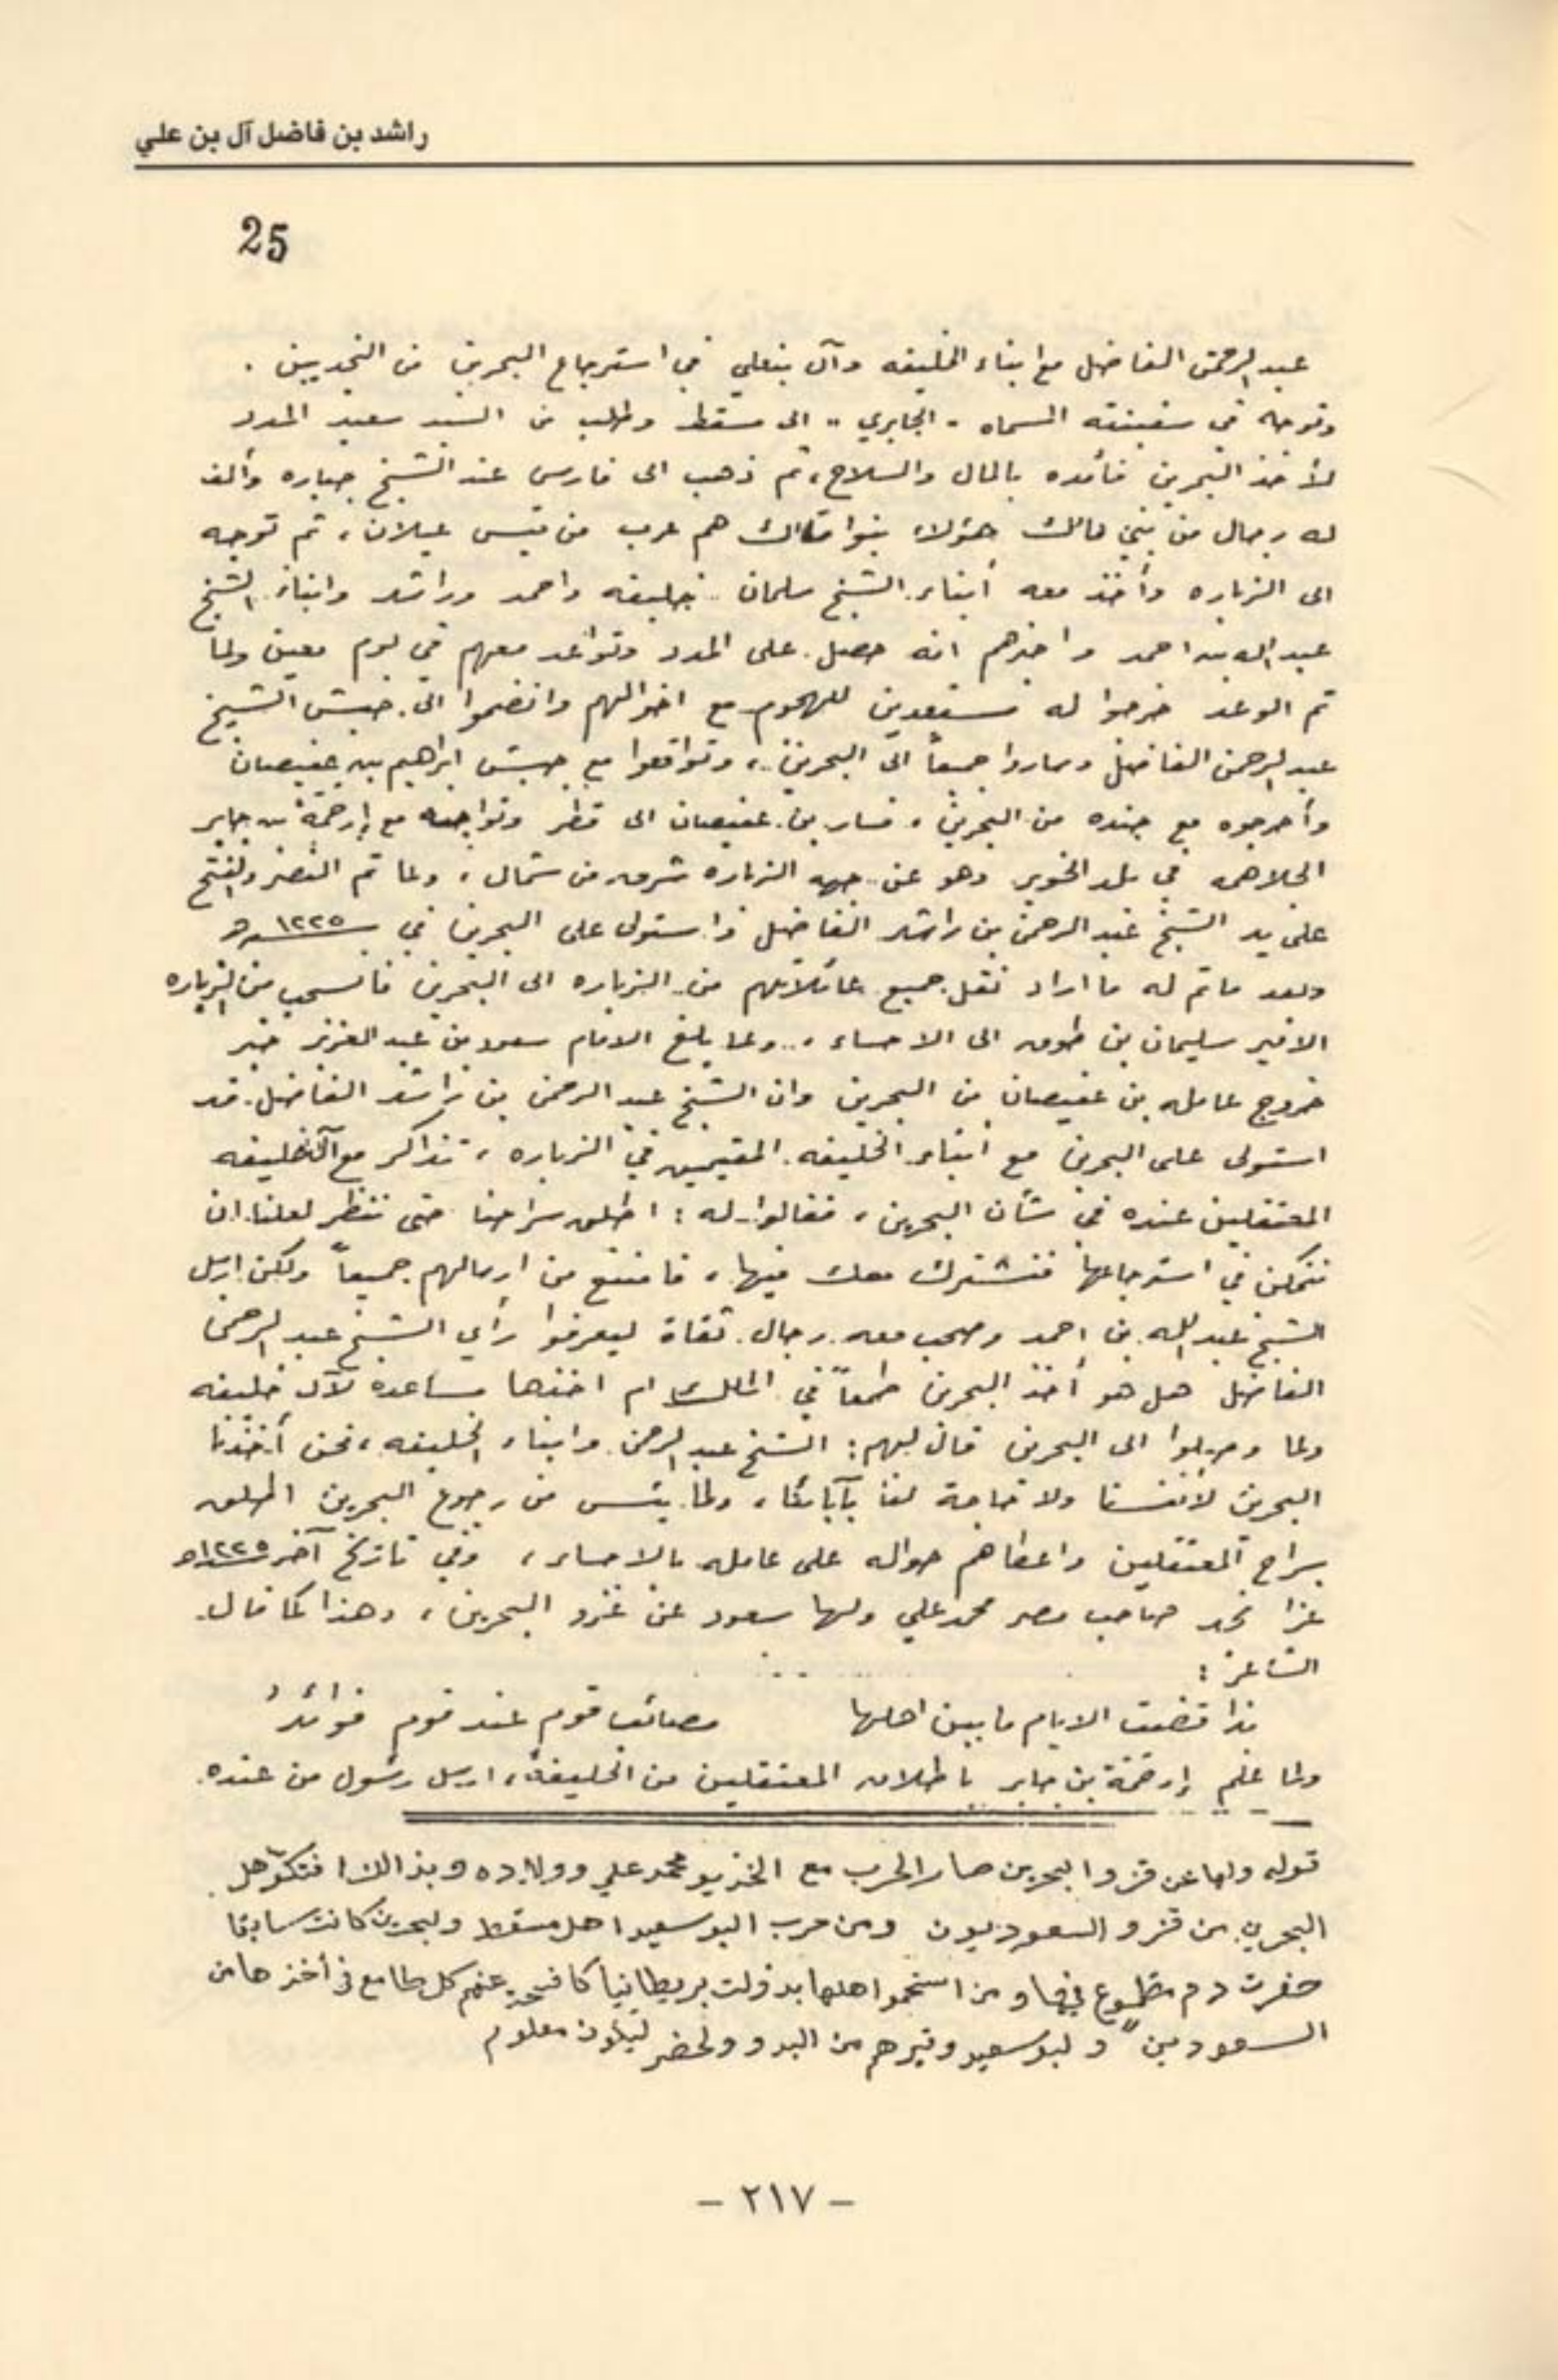 راشد بن فاضل آل بن علي
25
عبدالرحمن الفاضل مع ابناء الخليفه وآل بنعلي في استرجاع البحرين من النجديين .
وتوجه في سفينته المسماه " الجابري " الى مسقط وطلب من السيد سعيد المدد
لأخذ البحرين فأمده بالمال والسلاح ، ثم ذهب الى فارس عند الشيخ جباره وألف
له رجال من بني مالك هؤلاء بنوا مالك هم عرب من قيس عيلان ، ثم توجه
الى الزباره وأخذ معه أبناء الشيخ سلمان خليفه واحمد وراشد وابناء الشيخ
عبدالله بن احمد واخبرهم انه حصل على المدد وتواعد معهم في يوم معين ولما
تم الوعد خرجوا له مستعدين للهجوم مع اخوالهم وانضموا الى جيش الشيخ
عبدالرحمن الفاضل وساروا جميعاً الى البحرين ، وتواقعوا مع جيش ابراهيم بن عفيصان
وأخرجوه مع جنده من البحرين ، فسار بن عفيصان الى قطر وتواجه مع إرحمة بن جابر
الجلاهمه في بلد الخوير وهو عن جهه الزباره شرق من شمال ، ولما تم النصر والفتح
على يد الشيخ عبدالرحمن بن راشد الفاضل واستولى على البحرين في ١٢٢٥هـ
وبعد ماتم له ما اراد نقل جميع عائلاتهم من الزباره الى البحرين فانسحب من الزباره
الامير سليمان بن طوق الى الاحساء ، ولما بلغ الامام سعود بن عبدالعزيز خبر
خروج عامله بن عفيصان من البحرين وان الشيخ عبدالرحمن بن راشد الفاضل قد
استولى على البحرين مع أبناء الخليفه المقيمين في الزباره ، تذاكر مع آل خليفه
المعتقلين عنده في شأن البحرين ، فقالوا له : اطلق سراحنا حتى ننظر لعلنا ان
نتمكن في استرجاعها فنشترك معك فيها ، فامتنع من ارسالهم جميعاً ولكن ارسل
الشيخ عبدالله بن احمد وصحب معه رجال ثقاة ليعرفوا رأي الشيخ عبدالرحمن
الفاضل هل هو أخذ البحرين طمعاً في الملك ام اخذها مساعده لآل خليفه
ولما وصلوا الى البحرين قال لهم : الشيخ عبدالرحمن وابناء الخليفه ، نحن أخذنا
البحرين لأنفسنا ولا حاجة لنا بآبائنا ، ولما يئس من رجوع البحرين اطلق
سراح المعتقلين واعطاهم حواله على عامله بالاحساء ، وفي تاريخ آخر ١٢٢٥هـ
غزا نجد صاحب مصر محمد علي ولها سعود عن غزو البحرين ، وهذا كما قال
الشاعر :
بذا قضت الايام ما بين اهلها مصائب قوم عند قوم فوائدُ
ولما علم إرحمة بن جابر باطلاق المعتقلين من الخليفة ، ارسل رسول من عنده
قوله ولها عن قزو البحرين صار الحرب مع الخذيو محمد علي وولاده وبذالك
البحرين من قزو السعوديون ومن حرب البوسعيد اهل مسقط ولبحرين كانت سابقا
حفرت دم مطموع فيها و من اهلها بدولت بريطانيا عنهم كل طامع في أخذها من
السعوديين و لبوسعيد وغيرهم من البدو ولحضر ليكون معلوم
- ٢١٧ -